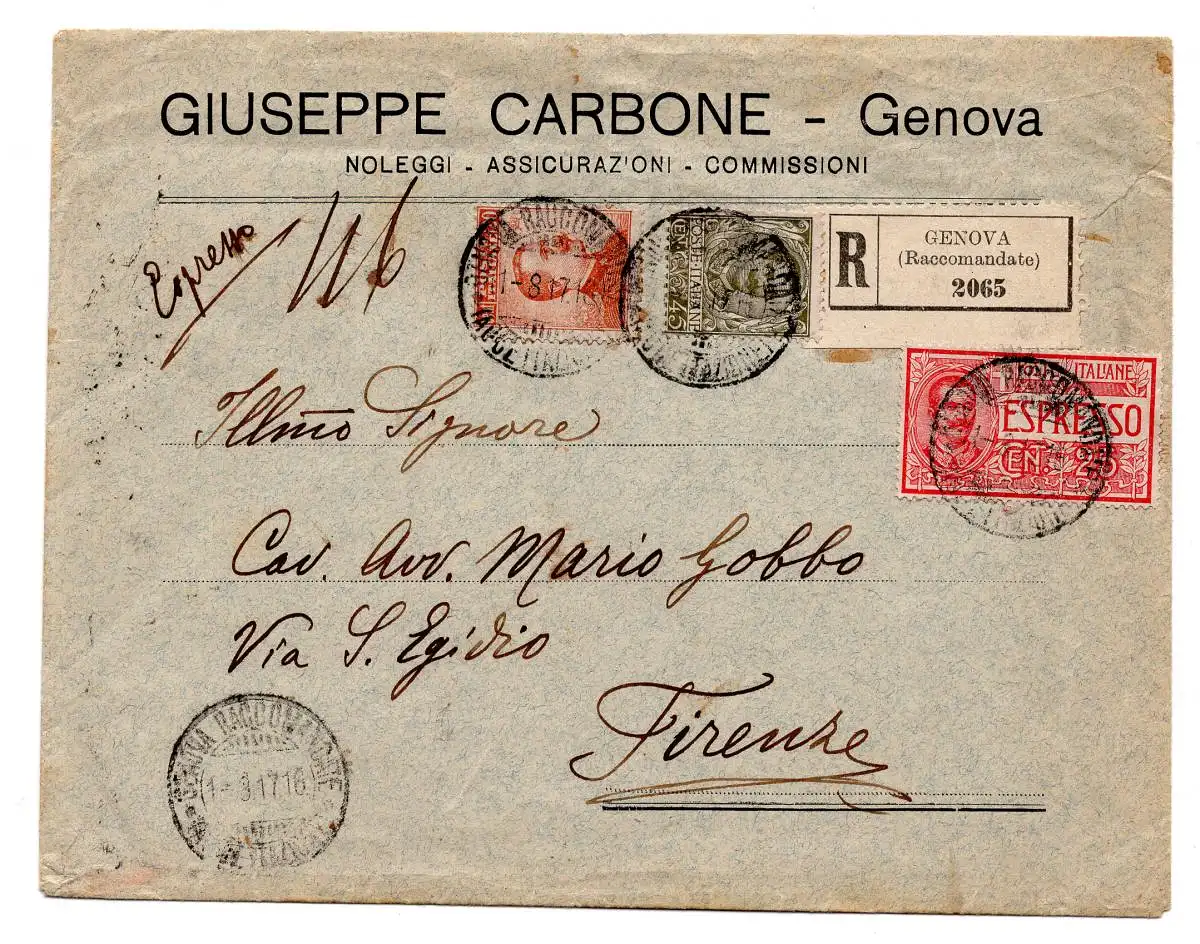 GIUSEPPE CARBONE - Genova
NOLEGGI - ASSICURAZIONI - COMMISSIONI
Espresso
R
GENOVA
(Raccomandate)
2065
POSTE·ITALIANE
CENT. 45
ITALIANE
ESPRESSO
CEN. 25
Illmo Signore
Cav. Avv. Mario Gobbo
Via S. Egidio
Firenze
GENOVA RACCOMANDATE
1-8.17 16